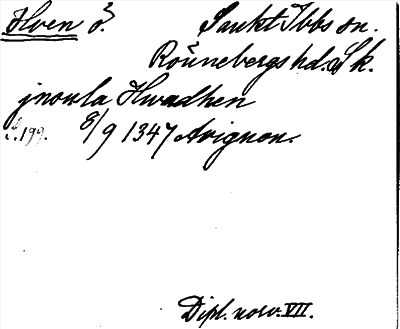 Hven ö. Sankt Ibbs sn.
Rönnebergs hd. Sk.
jnsula Hwædhen
s. 199. 8/9 1347 Avignon.
Dipl. norv. VII.